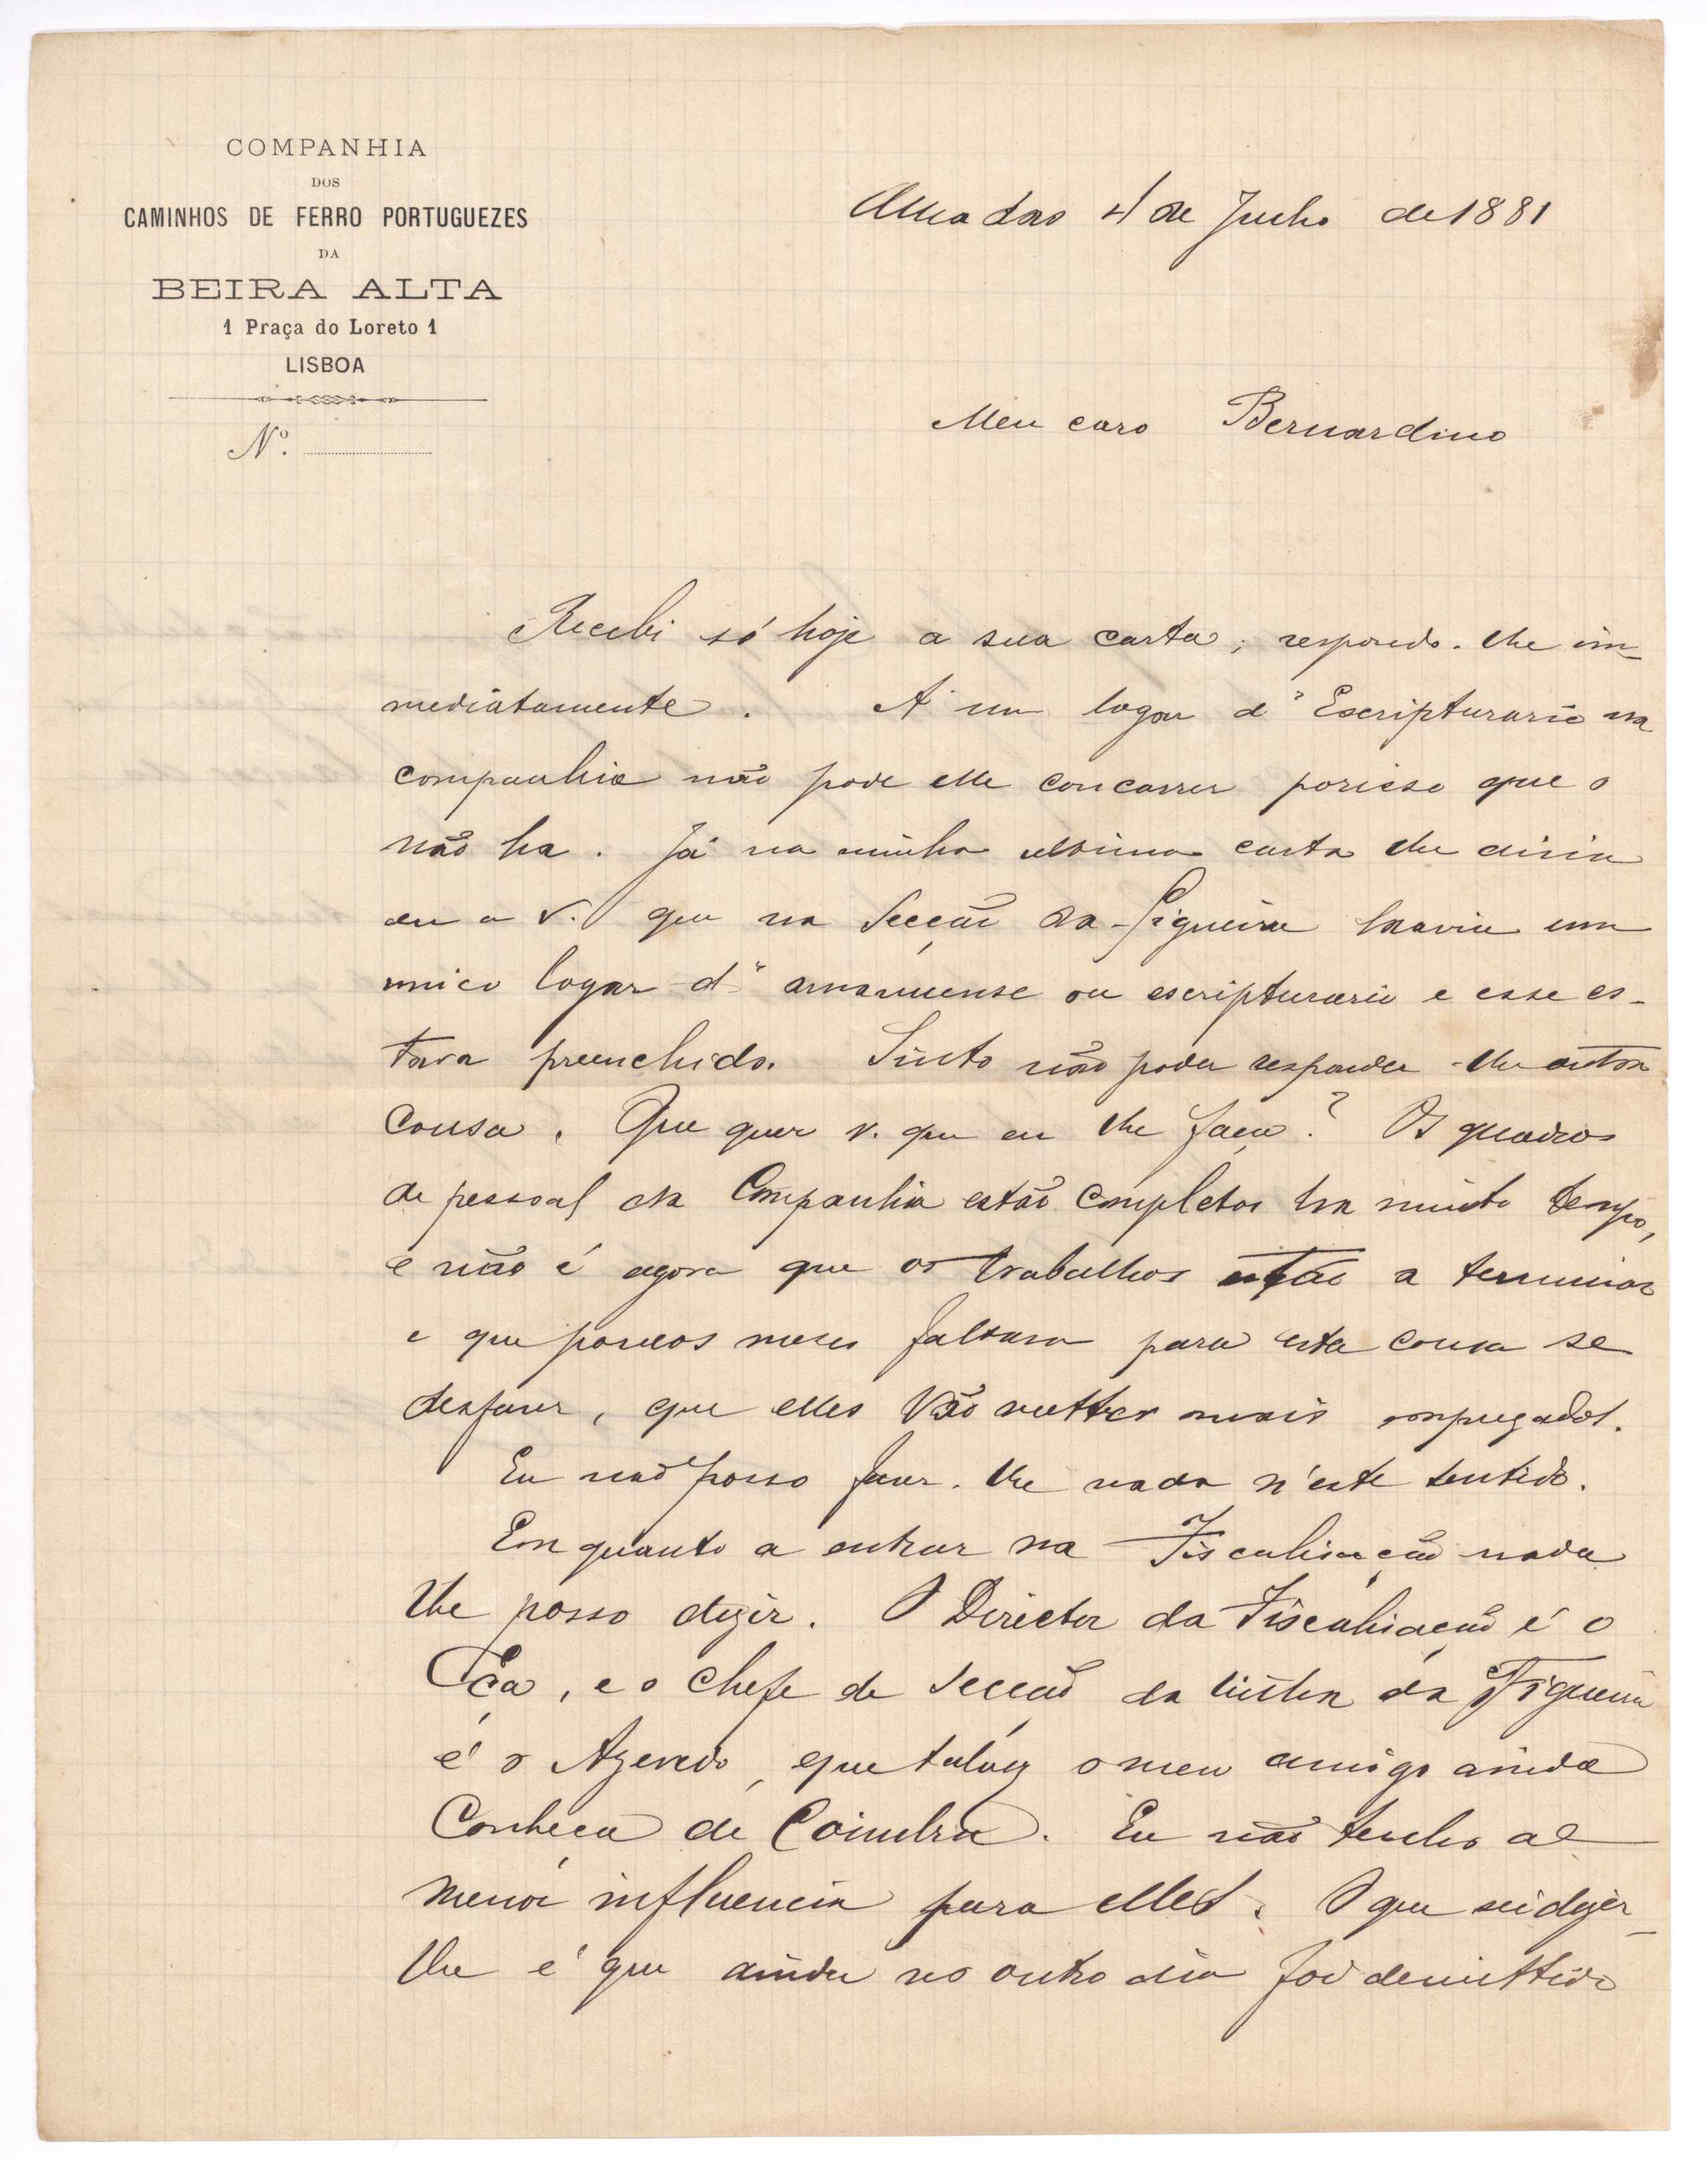 COMPANHIA
DOS
CAMINHOS DE FERRO PORTUGUEZES
DA
BEIRA ALTA
1 Praça do Loreto 1
LISBOA
Nº.
4 de Junho de 1881
Meu caro Bernardino
Recebi só hoje a sua carta; respondo-lhe im-
mediatamente. A um logar d'Escripturario na
companhia não pode elle concorrer porisso que o
não ha. Já na minha ultima carta lhe dizia
eu a V. que na Secção da Figueira havia um
unico logar d'amanuense ou escripturario e esse es-
tava preenchido. Sinto não poder responder-lhe outra
cousa. Que quer v. que eu lhe faça? Os quadros
de pessoal da Companhia estão completos ha muito tempo,
e não é agora que os trabalhos estão a terminar
e que poucos mezes faltam para esta cousa se
desfazer, que elles vão metter mais empregados.
Eu não posso fazer-lhe nada n'este sentido.
Em quanto a entrar na Fiscalisação nada
lhe posso dizer. O Director da Fiscalisação é o
Eça, e o chefe de Secção da Figueira
é o Azevedo, que talvez o meu amigo ainda
Conheça de Coimbra. Eu não tenho a
menor influencia para elles. O que sei dizer-
lhe é que ainda no outro dia foi demittido